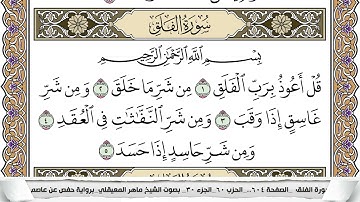 سُورَةُ الْفَلَقِ
بِسْمِ اللَّهِ الرَّحْمَٰنِ الرَّحِيمِ
قُلْ أَعُوذُ بِرَبِّ الْفَلَقِ ١ مِن شَرِّ مَا خَلَقَ ٢ وَمِن شَرِّ
غَاسِقٍ إِذَا وَقَبَ ٣ وَمِن شَرِّ النَّفَّاثَاتِ فِي الْعُقَدِ ٤
وَمِن شَرِّ حَاسِدٍ إِذَا حَسَدَ ٥
ورة الفلق _الصفحة ٦٠٤_ الحزب ٦٠_ الجزء ٣٠_ بصوت الشيخ ماهر المعيقلي_ برواية حفص عن عاصم